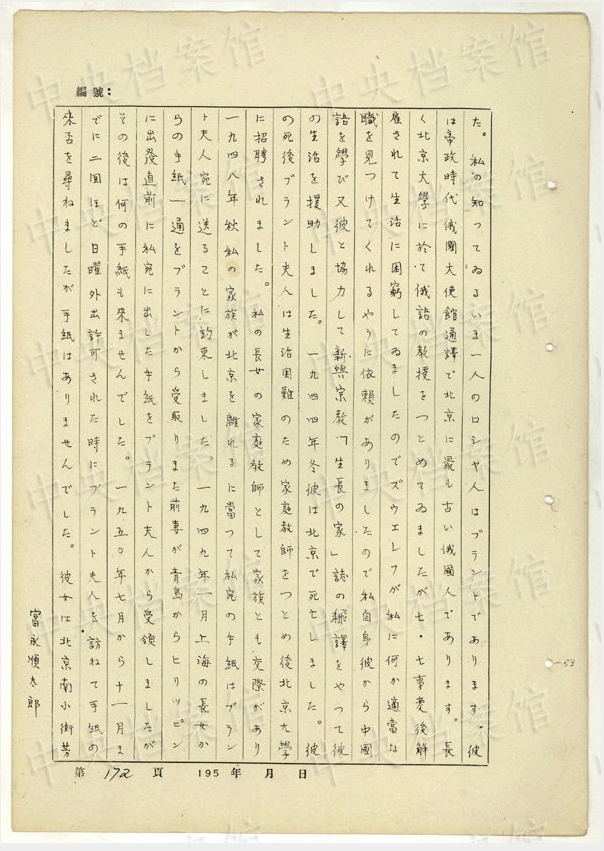 編號：
た。私の知ってゐるいま一人のロシヤ人はブラントであります。彼
は帝政時代俄國大使館通譯で北京に最も古い俄國人であります。長
く北京大學に於て俄語の教授をつとめてゐましたが七・七事変後解
雇されて生活に困窮してゐましたのでズウエレフが私に何か適當な
職を見つけてくれるやうに依頼がありましたので私自身彼から中國
語を學び又彼と協力して新興宗教「生長の家」誌の飜譯をやって彼
の生活を援助しました。一九四四年冬彼は北京で死亡しました。彼
の死後ブラント夫人は生活困難のため家庭教師をつとめ後北京大學
に招聘されました。私の長女の家庭教師として家族とも交際があり
一九四八年秋私の家族が北京を離れるに當って私宛の手紙はブラン
ト夫人宛に送ることに約束しました。一九四九年一月上海の長女か
らの手紙一通をブラントから受取りまた前妻が青島からヒリッピン
に出発直前に私宛に出した手紙をブラント夫人から受領しましたが
その後は何の手紙も来ませんでした。一九五〇年七月から十一月ま
でに二回ほど日曜外出許可された時にブラント夫人を訪ねて手紙の
来否を尋ねましたが手紙はありませんでした。彼女は北京南小街芳
富永順太郎
53
第 172 頁 195 年 月 日
中央档案馆